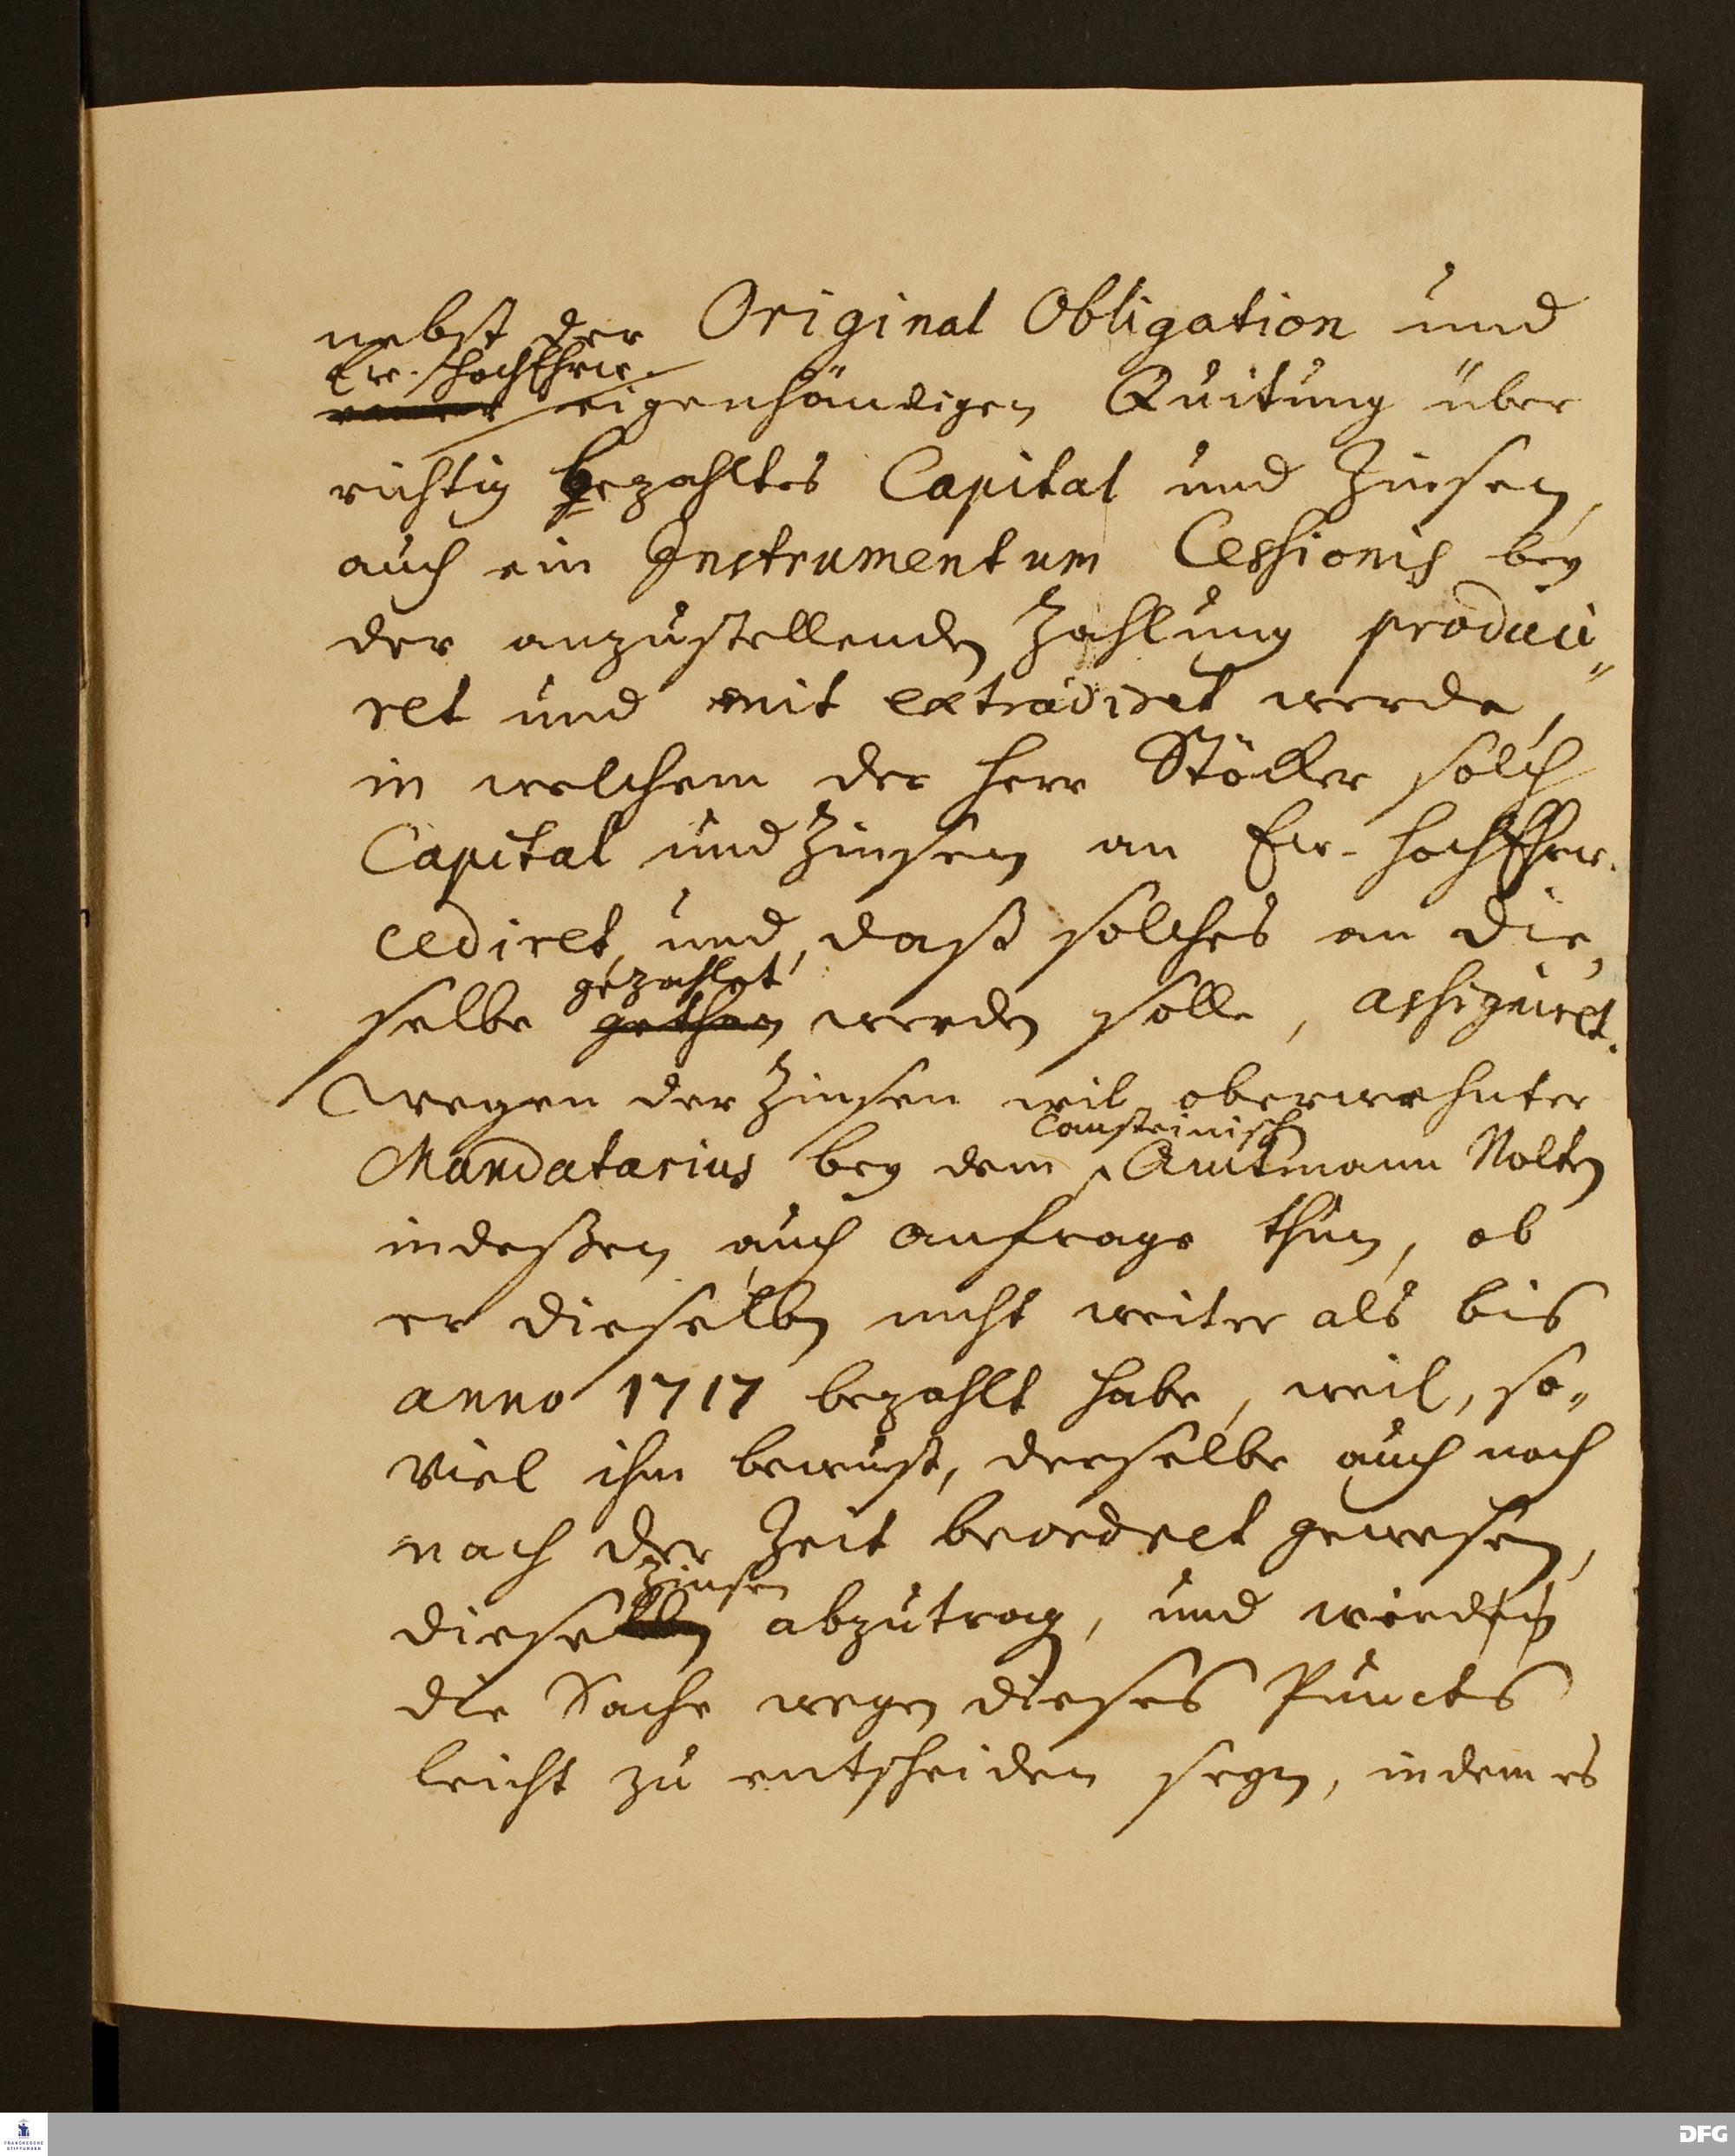 nebst der Original Obligation und
Ew. HochEhrw.
eigenhändigen Quitung über
richtig bezahltes Capital und Zinsen,
auch ein Instrumentum Cessionis bey
der anzustellenden Zahlung produci„
ret und mit extradiret werde,
in welchem der Herr Stöcker solch
Capital und Zinsen an Ew. HochEhrw.
cediret, und, daß solches an die„
gezahlet
selbe gethan werden solle, assigniret.
Wegen der Zinsen wil oberwehnter
Cansteinisch
Mandatarius bey dem Amtmann Nolten
indeßen auch anfrage thun, ob
er dieselben nicht weiter als bis
anno 1717 bezahlt habe, weil, so„
viel ihm bewust, derselbe auch noch
nach der Zeit beordret gewesen,
Zinsen
diese abzutragen, und wird
die Sache wegen dieses Puncts
leicht zu entscheiden seyn, indem es
FRANCKESCHE
STIFTUNGEN
DFG